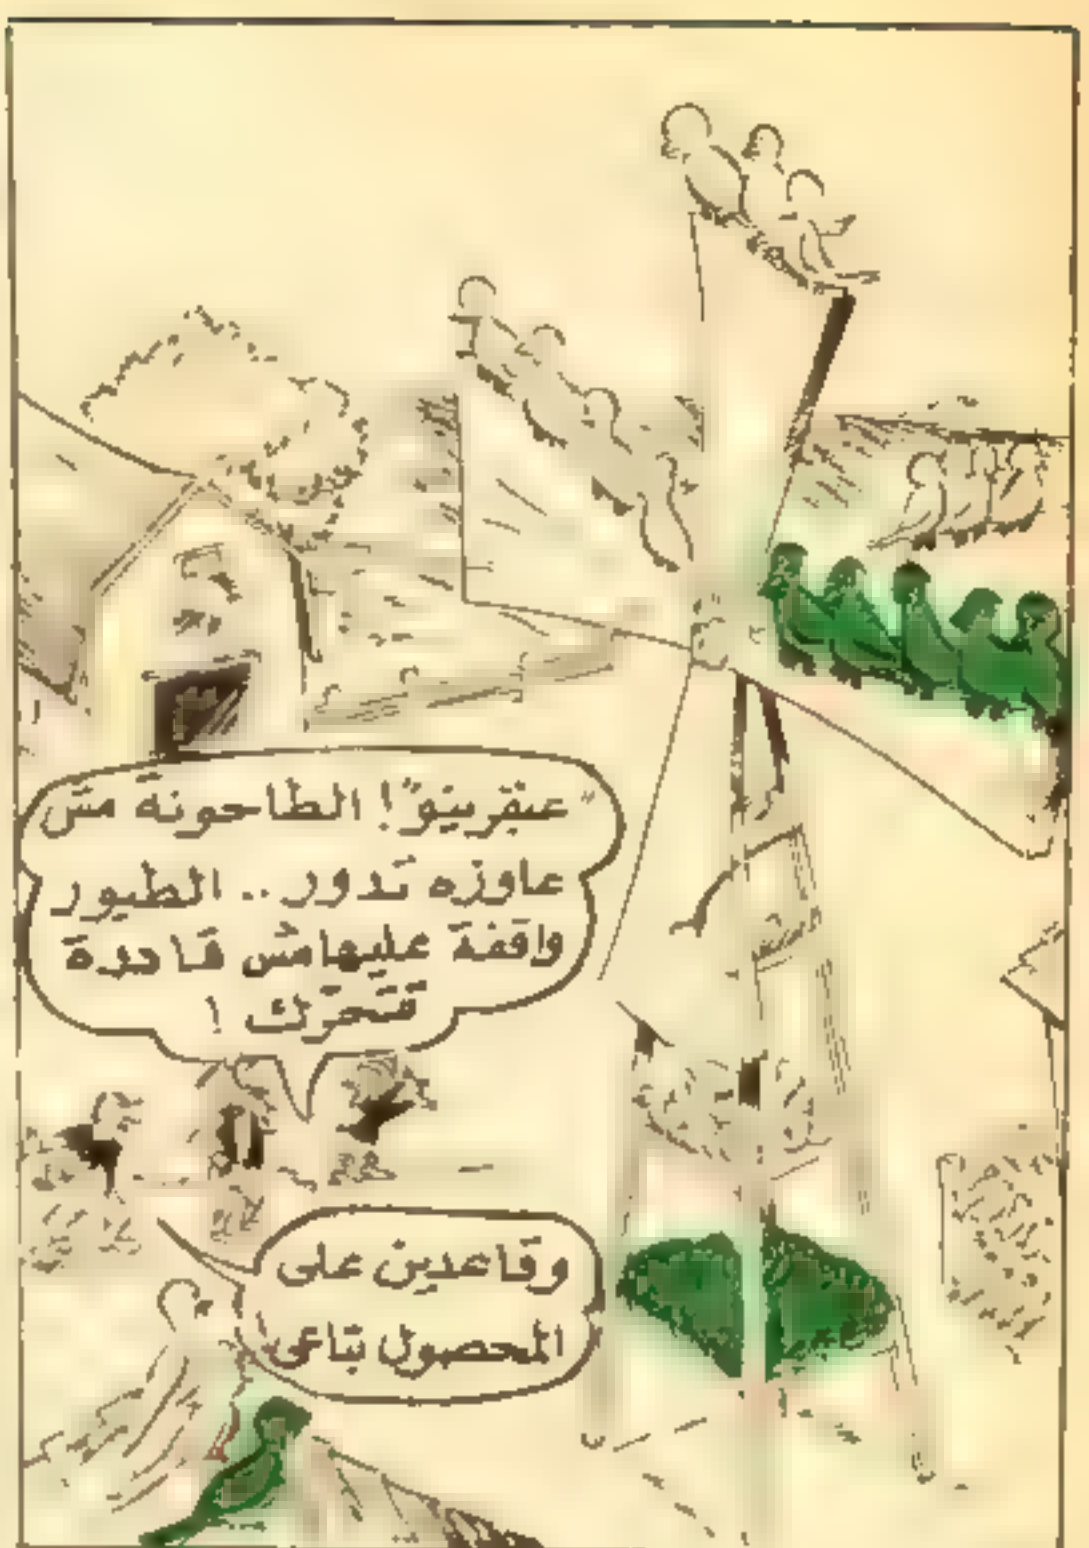 "عبقرينو"! الطاحونة مش
عاوزه تدور .. الطيور
واقفة عليها مش قادرة
تتحرك !
وقاعدين على
المحصول بتاعى